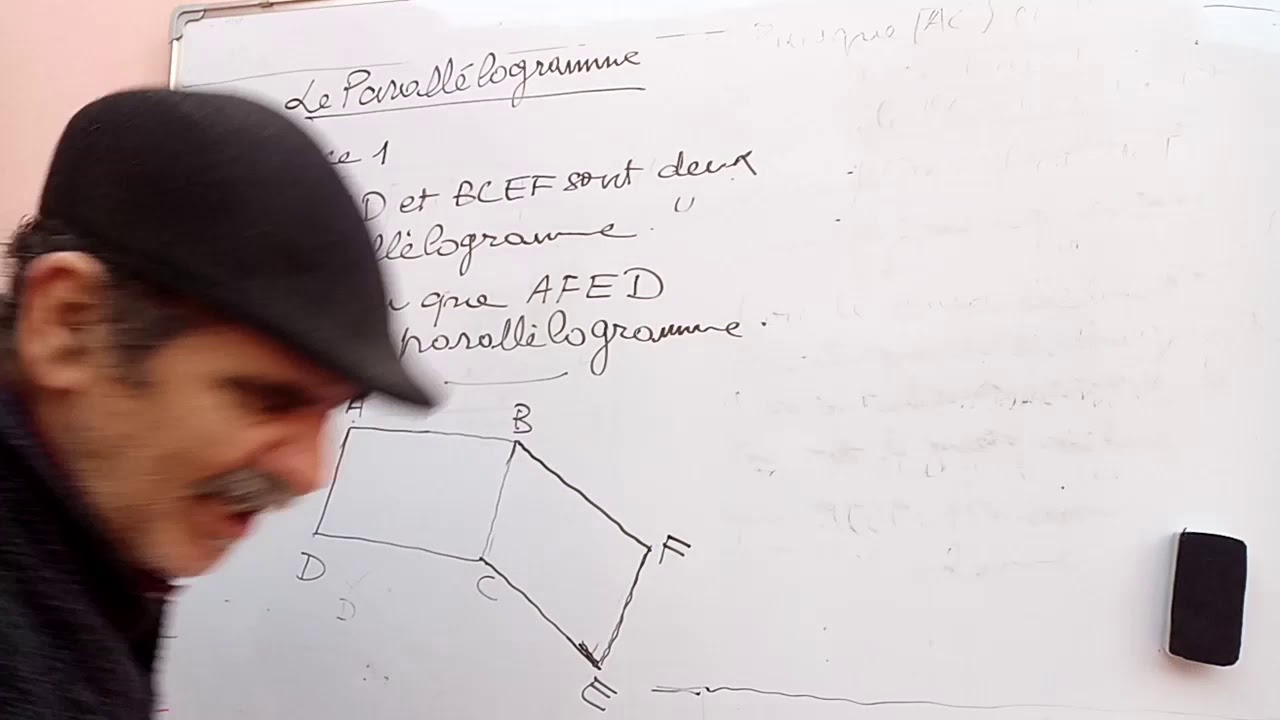 Le Parallélogramme
ce 1
D et BCEF sont deux
llélogramme.
que AFED
parallélogramme.
A
B
F
D
C
D
E